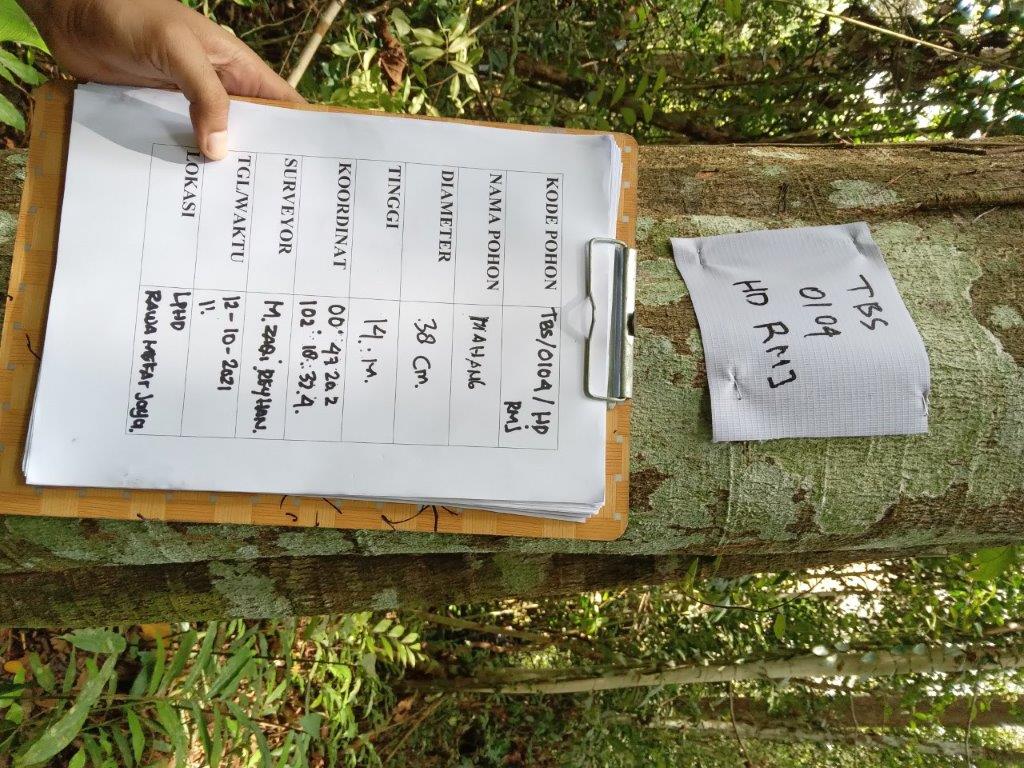 KODE POHON TBS/0104/HD
RMJ
NAMA POHON MAHANG
DIAMETER 38 CM.
TINGGI 14. M.
KOORDINAT
SURVEYOR
TGL/WAKTU 12-10-2021
11.
LOKASI LPHD
RAWA MEKAR JAYA.
TBS
0104
HD RMJ